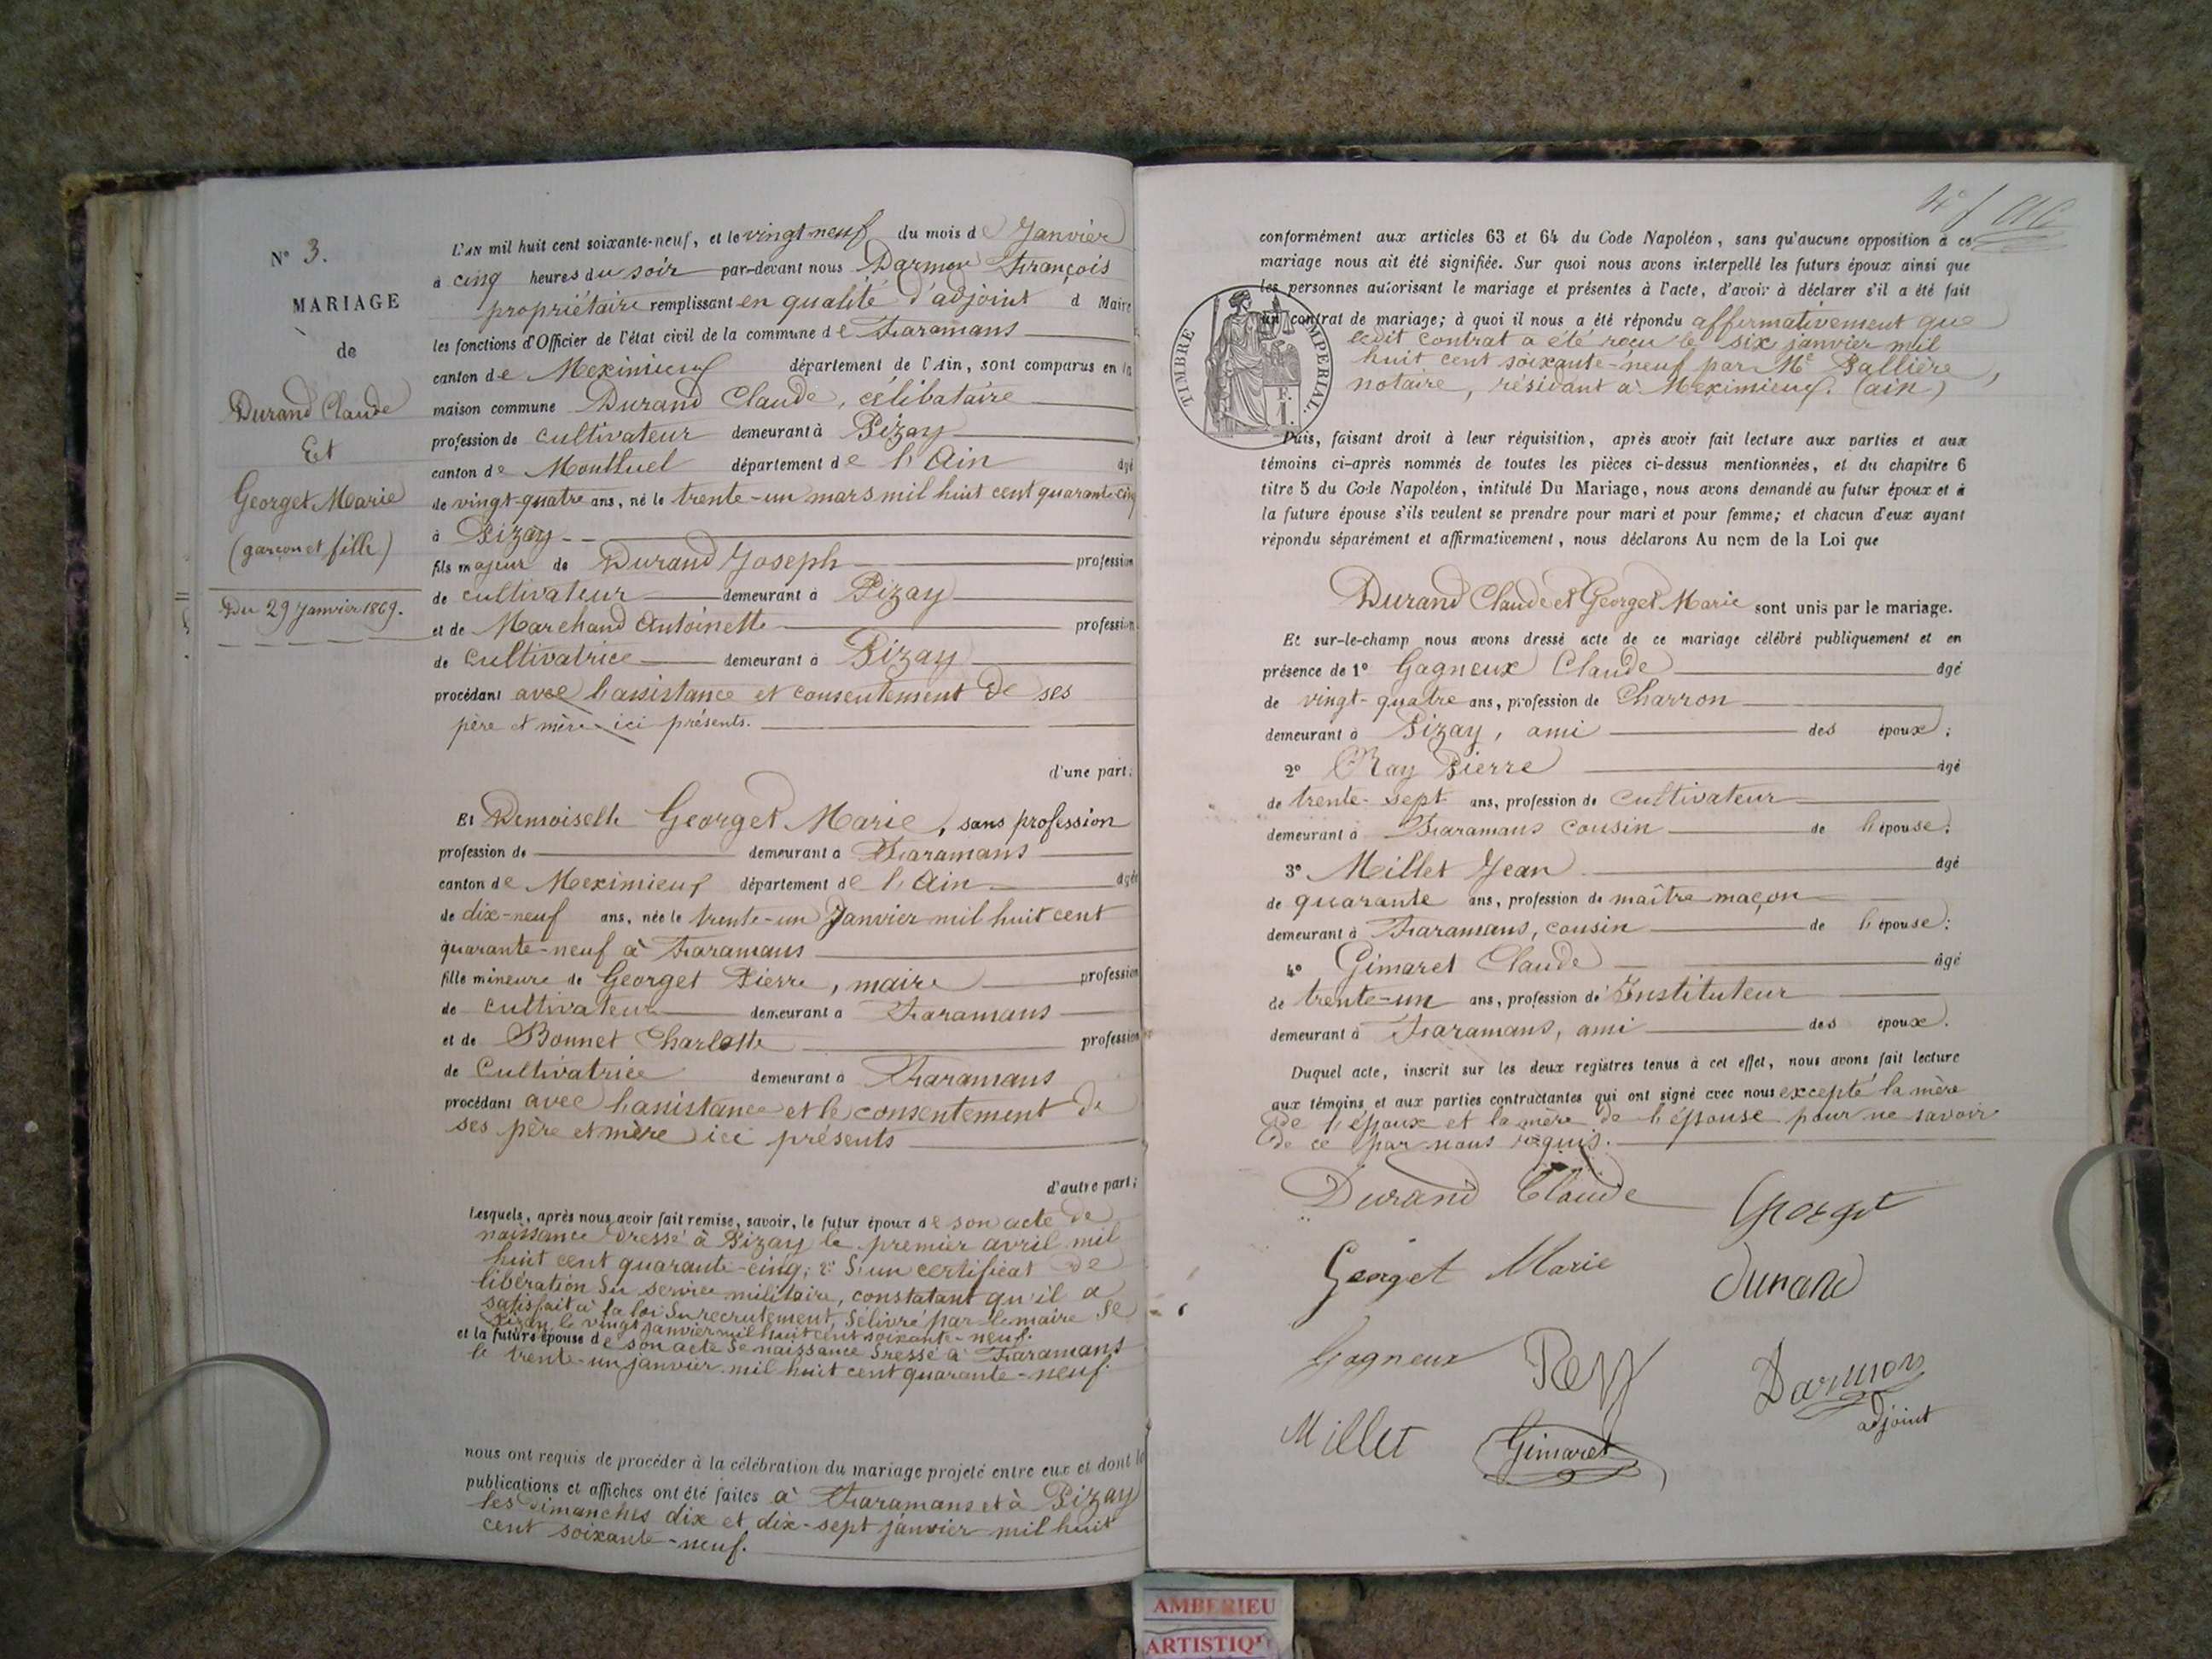 N° 3.
MARIAGE
de
Durand Claude
Et
Georget Marie
(garçon et fille)
Du 29 Janvier 1869.
L'AN mil huit cent soixante-neuf, et le vingt neuf du mois de Janvier
à cinq heures du soir par-devant nous Darmon François
propriétaire remplissant en qualité d'adjoint d Maire
les fonctions d'Officier de l'état civil de la commune de Faramans
canton de Meximieux département de l'Ain, sont comparus en la
maison commune Durand Claude, célibataire
profession de cultivateur demeurant à Pizay
canton de Montluel département de l'Ain âgé
de vingt-quatre ans, né le trente-un mars mil huit cent quarante-cinq
à Pizay
fils majeur de Durand Joseph profession
de cultivateur demeurant à Pizay
et de Marchand Antoinette profession
de cultivatrice demeurant à Pizay
procédant avec l'assistance et consentement de ses
père et mère ici présents.
d'une part;
Et Demoiselle Georget Marie, sans profession
profession de demeurant à Faramans
canton de Meximieux département de l'Ain âgée
de dix-neuf ans, née le trente-un Janvier mil huit cent
quarante-neuf à Faramans
fille mineure de Georget Pierre, maire profession
de cultivateur demeurant à Faramans
et de Bonnet Charlotte profession
de Cultivatrice demeurant à Faramans
procédant avec l'assistance et le consentement de
ses père et mère ici présents
d'autre part;
Lesquels, après nous avoir fait remise, savoir, le futur époux de son acte de
naissance dressé à Pizay le premier avril mil
huit cent quarante-cinq; 2° d'un certificat de
libération du service militaire, constatant qu'il a
satisfait à la loi du recrutement, délivré par le maire de
Pizay le vingt janvier mil huit cent soixante-neuf.
et la future épouse de son acte de naissance dressé à Faramans
le trente-un janvier mil huit cent quarante-neuf.
nous ont requis de procéder à la célébration du mariage projeté entre eux et dont les
publications et affiches ont été faites à Faramans et à Pizay
les dimanches dix et dix-sept janvier mil huit
cent soixante-neuf.
conformément aux articles 63 et 64 du Code Napoléon, sans qu'aucune opposition à ce
mariage nous ait été signifiée. Sur quoi nous avons interpellé les futurs époux ainsi que
les personnes autorisant le mariage et présentes à l'acte, d'avoir à déclarer s'il a été fait
un contrat de mariage; à quoi il nous a été répondu affirmativement que
ledit contrat a été reçu le six janvier mil
huit cent soixante-neuf par Me Pallière,
notaire, résidant à Meximieux. (ain)
TIMBRE IMPERIAL.
Puis, faisant droit à leur réquisition, après avoir fait lecture aux parties et aux
témoins ci-après nommés de toutes les pièces ci-dessus mentionnées, et du chapitre 6
titre 5 du Code Napoléon, intitulé Du Mariage, nous avons demandé au futur époux et à
la future épouse s'ils veulent se prendre pour mari et pour femme; et chacun d'eux ayant
répondu séparément et affirmativement, nous déclarons Au nom de la Loi que
Durand Claude et Georget Marie sont unis par le mariage.
Et sur-le-champ nous avons dressé acte de ce mariage célébré publiquement et en
présence de 1° Gagneux Claude âgé
de vingt-quatre ans, profession de Charron
demeurant à Pizay, ami des époux;
2° Ray Pierre âgé
de trente-sept ans, profession de cultivateur
demeurant à Faramans cousin de l'épouse;
3° Millet Jean âgé
de quarante ans, profession de maître maçon
demeurant à Faramans, cousin de l'épouse;
4° Gimaret Claude âgé
de trente-un ans, profession de Instituteur
demeurant à Faramans, ami des époux.
Duquel acte, inscrit sur les deux registres tenus à cet effet, nous avons fait lecture
aux témoins et aux parties contractantes qui ont signé avec nous excepté la mère
de l'époux et la mère de l'épouse pour ne savoir
de ce par nous requis.
Durand Claude Georget
Georget Marie durand
Gagneux Rey Darmon
adjoint
Millet Gimaret
AMBERIEU
ARTISTIQU